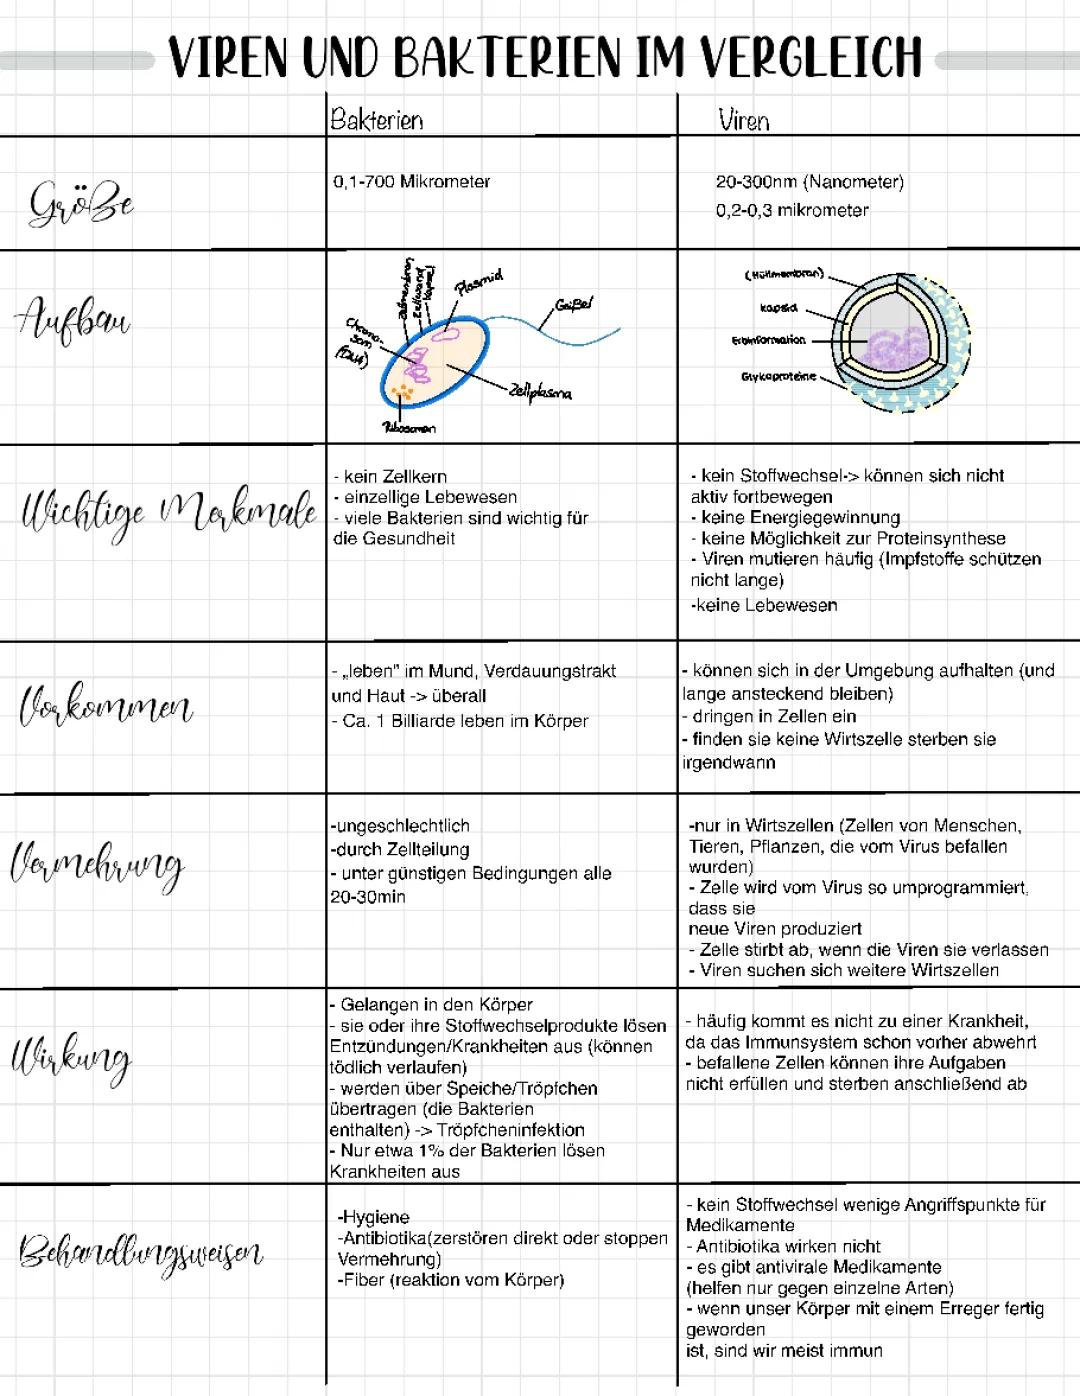 VIREN UND BAKTERIEN IM VERGLEICH
Bakterien
Viren
Größe
0,1-700 Mikrometer
20-300nm (Nanometer)
0,2-0,3 mikrometer
Aufbau
Zellmembran
Zellwand
Kapsel
Plasmid
Geißel
Chromo-
som
(DNA)
Zellplasma
Ribosomen
(Hüllmembran)
Kapsid
Erbinformation
Glykoproteine
Wichtige Merkmale
- kein Zellkern
- einzellige Lebewesen
- viele Bakterien sind wichtig für
die Gesundheit
- kein Stoffwechsel-> können sich nicht
aktiv fortbewegen
- keine Energiegewinnung
- keine Möglichkeit zur Proteinsynthese
- Viren mutieren häufig (Impfstoffe schützen
nicht lange)
-keine Lebewesen
Vorkommen
- „leben" im Mund, Verdauungstrakt
und Haut -> überall
- Ca. 1 Billiarde leben im Körper
- können sich in der Umgebung aufhalten (und
lange ansteckend bleiben)
- dringen in Zellen ein
- finden sie keine Wirtszelle sterben sie
irgendwann
Vermehrung
-ungeschlechtlich
-durch Zellteilung
- unter günstigen Bedingungen alle
20-30min
-nur in Wirtszellen (Zellen von Menschen,
Tieren, Pflanzen, die vom Virus befallen
wurden)
- Zelle wird vom Virus so umprogrammiert,
dass sie
neue Viren produziert
- Zelle stirbt ab, wenn die Viren sie verlassen
- Viren suchen sich weitere Wirtszellen
Wirkung
- Gelangen in den Körper
- sie oder ihre Stoffwechselprodukte lösen
Entzündungen/Krankheiten aus (können
tödlich verlaufen)
- werden über Speiche/Tröpfchen
übertragen (die Bakterien
enthalten) -> Tröpfcheninfektion
- Nur etwa 1% der Bakterien lösen
Krankheiten aus
- häufig kommt es nicht zu einer Krankheit,
da das Immunsystem schon vorher abwehrt
- befallene Zellen können ihre Aufgaben
nicht erfüllen und sterben anschließend ab
Behandlungsweisen
-Hygiene
-Antibiotika(zerstören direkt oder stoppen
Vermehrung)
-Fiber (reaktion vom Körper)
- kein Stoffwechsel wenige Angriffspunkte für
Medikamente
- Antibiotika wirken nicht
- es gibt antivirale Medikamente
(helfen nur gegen einzelne Arten)
- wenn unser Körper mit einem Erreger fertig
geworden
ist, sind wir meist immun